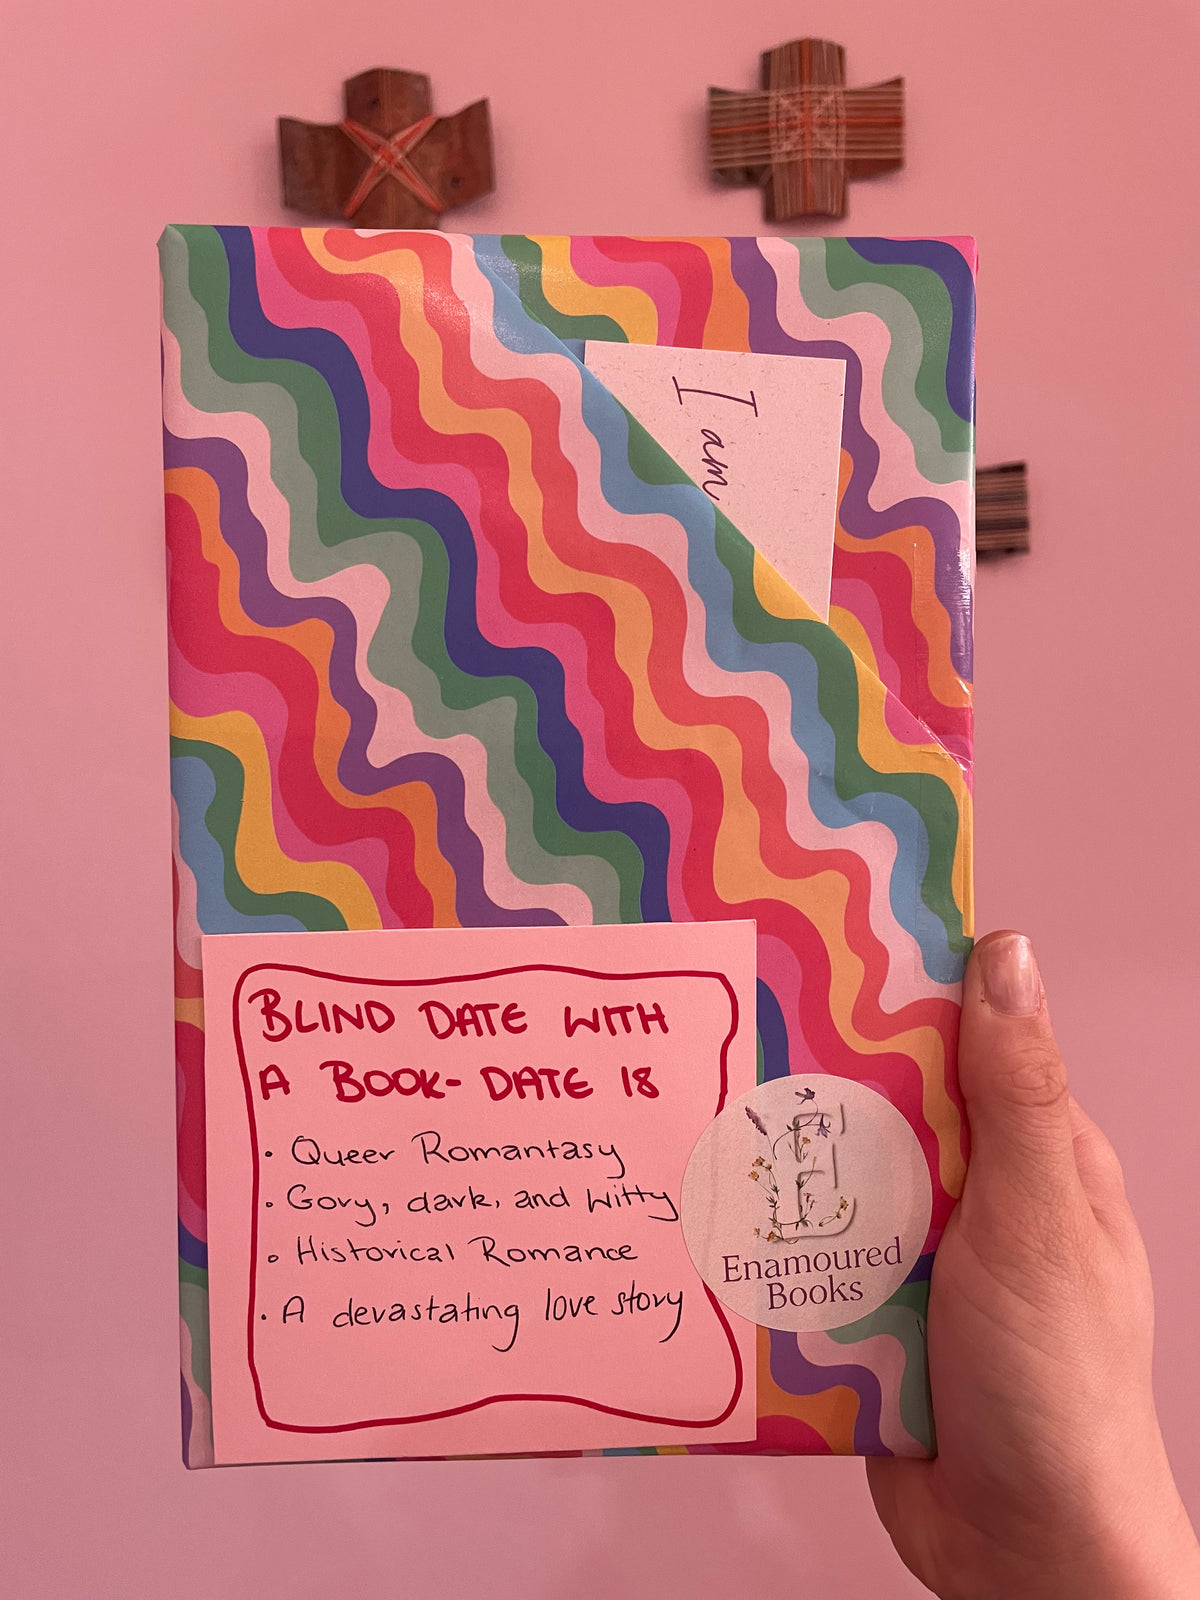 I am
BLIND DATE WITH
A BOOK- DATE 18
• Queer Romantasy
• Gory, dark, and witty
• Historical Romance
• A devastating love story
E
Enamoured
Books